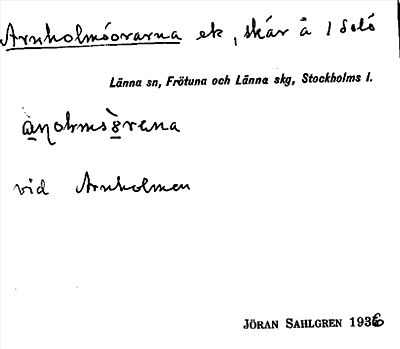 Arnholmsörarna ek, skär å 1 Sålö
Länna sn, Frötuna och Länna skg, Stockholms l.
vid Arnholmen
JÖRAN SAHLGREN 1936